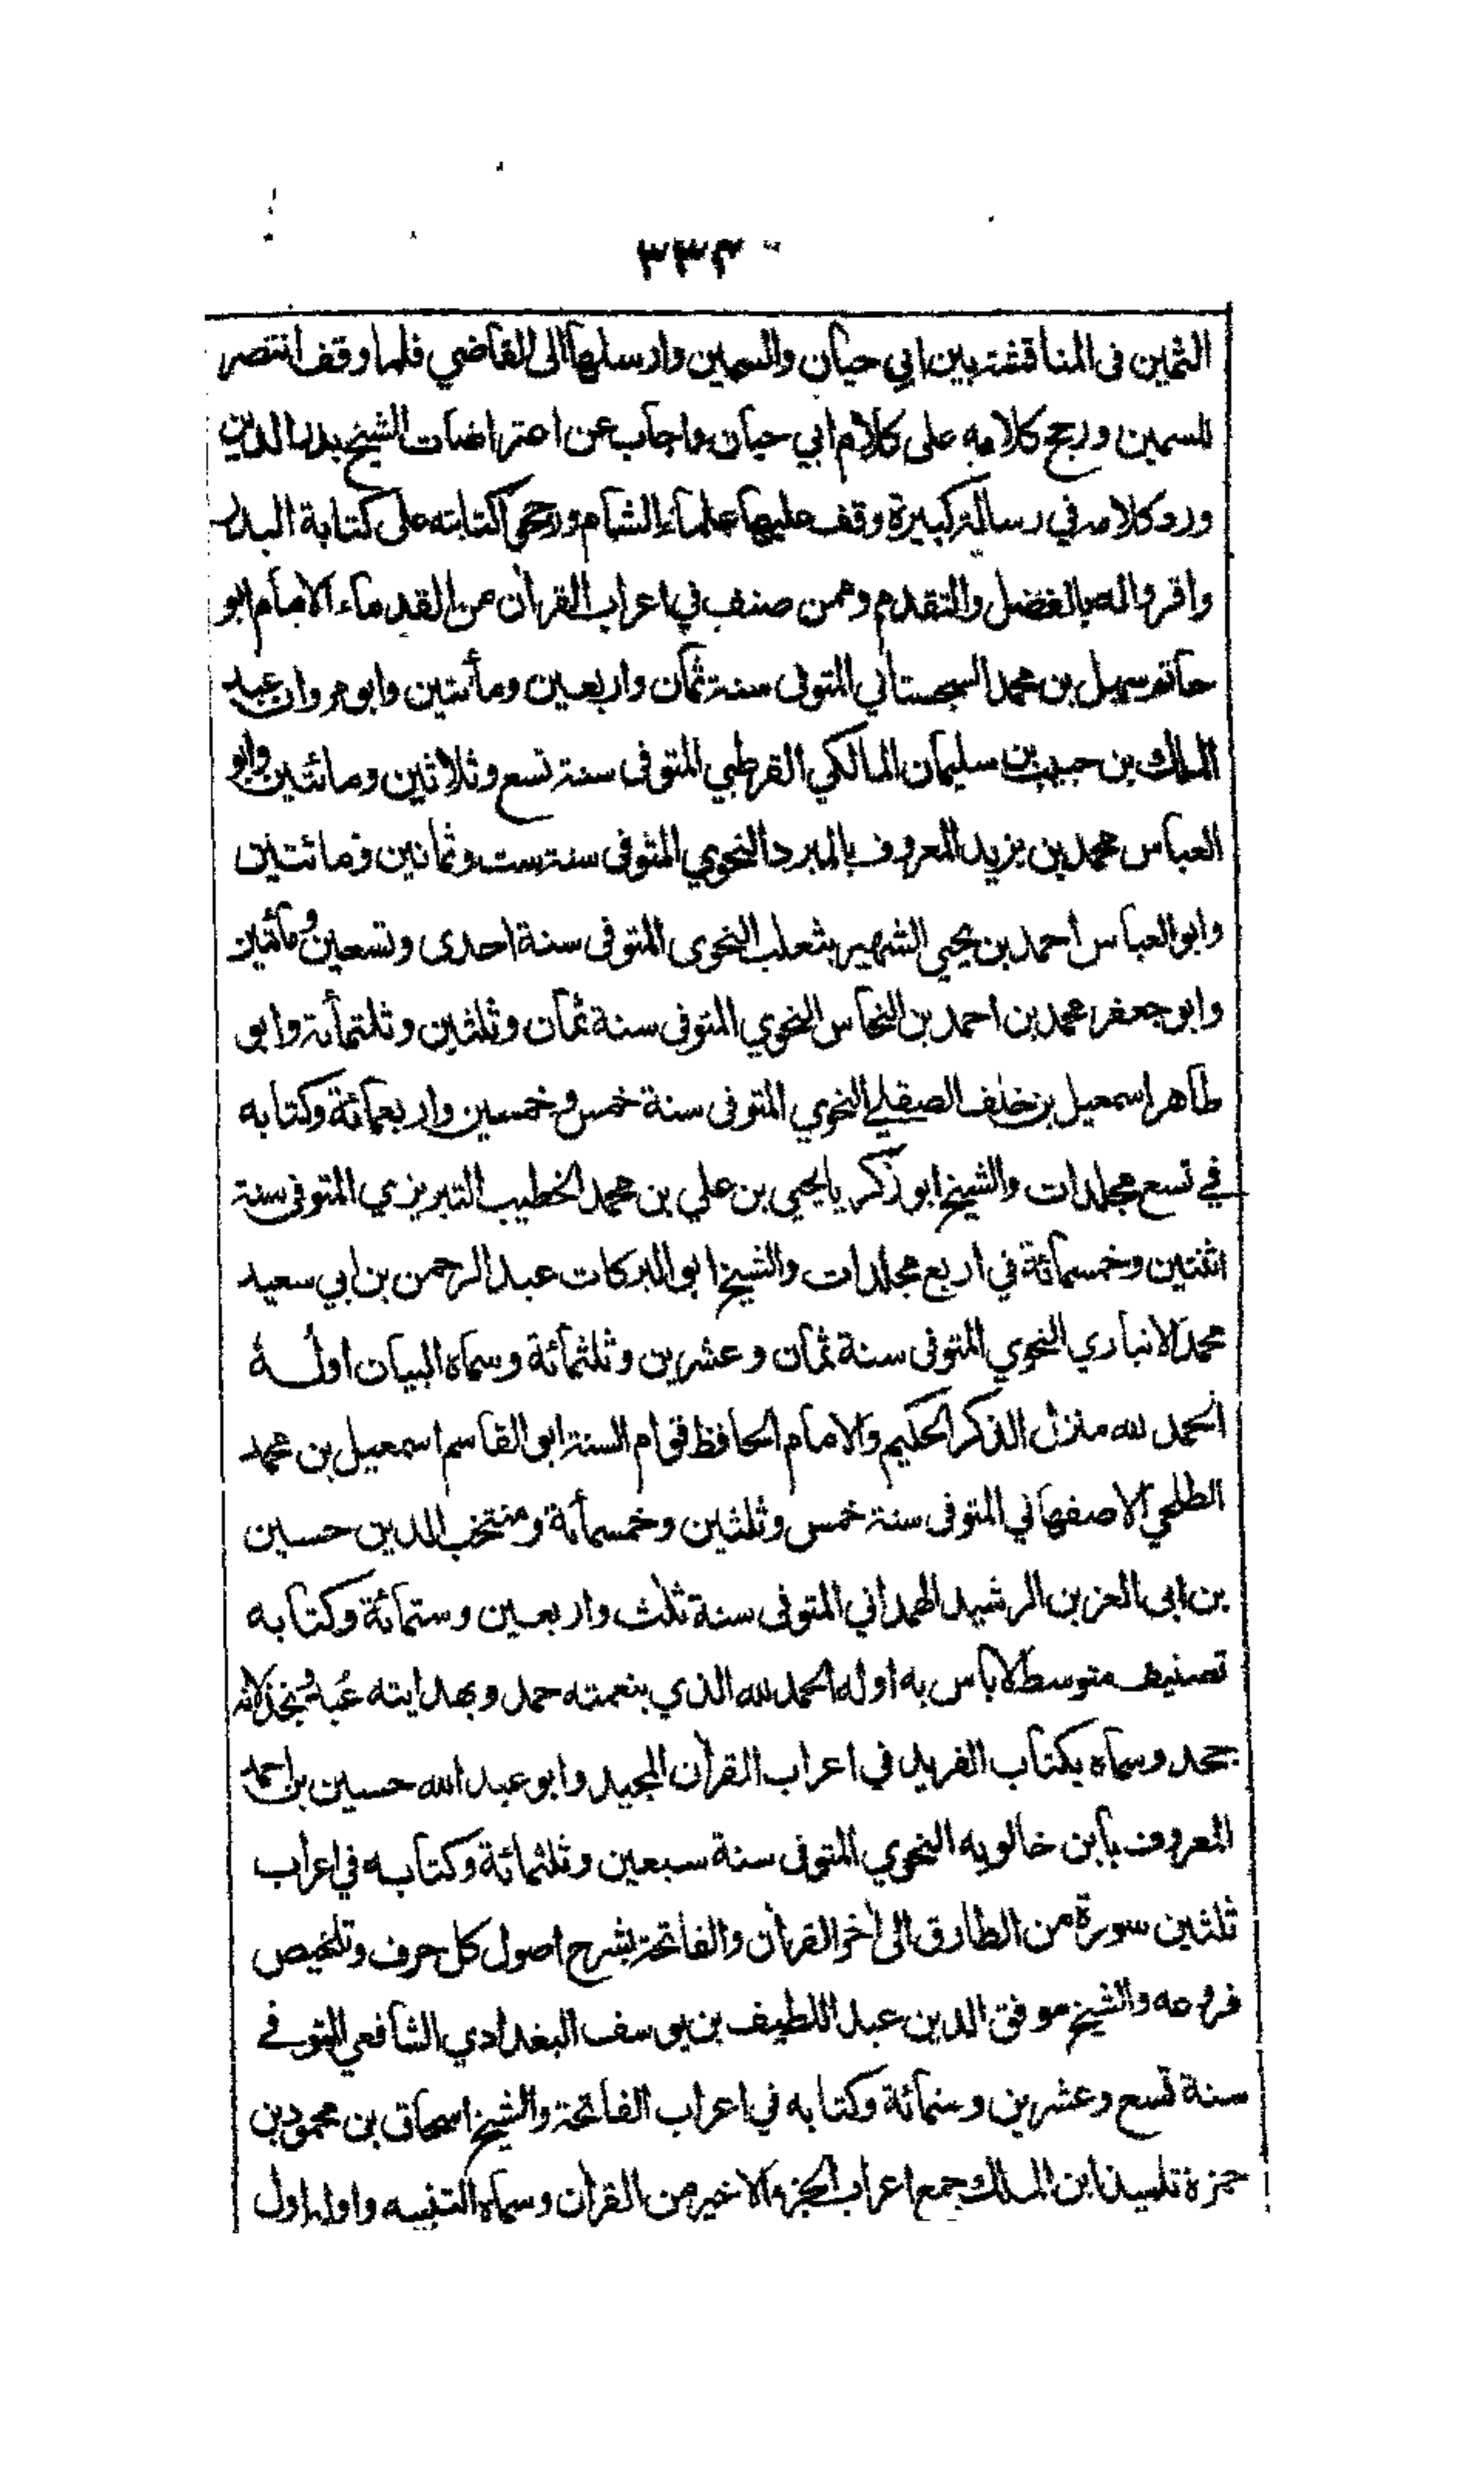 ٣٣٣
الثمين فى المناقشة بين ابي حيان والسمين وارسلها الى القاضي فلما وقف انتصر
للسمين ورجح كلامه على كلام ابي حيان واجاب عن اعتراضات الشيخ بدر الدين
ورد كلامه في رسالة كبيرة وقف عليها علماء الشام ورجحوا كتابته على كتابة البدر
واقروا له بالفضل والتقدم وممن صنف في اعراب القرأن من القدماء الامام ابو
حاتم سهيل بن محمد السجستاني المتوفى سنة ثمان واربعين ومأتين وابو مروان عبد
الملك بن حبيب بن سليمان المالكي القرطبي المتوفى سنة تسع وثلاثين ومائتين وابو
العباس محمد بن يزيد المعروف بالمبرد النحوي المتوفى سنة ست وثمانين ومائتين
وابو العباس احمد بن يحيي الشهير بثعلب النحوى المتوفى سنة احدى وتسعين ومأتين
وابو جعفر محمد بن احمد بن النحاس النحوي المتوفى سنة ثمان وثلثين وثلثمأة وابو
طاهر اسمعيل بن خلف الصقلي النحوي المتوفى سنة خمس وخمسين واربعمائة وكتابه
في تسع مجلدات والشيخ ابو ذكريا يحيى بن علي بن محمد الخطيب التبريزي المتوفى سنة
اثنتين وخمسمائة في اربع مجلدات والشيخ ابو البركات عبد الرحمن بن ابي سعيد
محمد الانباري النحوي المتوفى سنة ثمان وعشرين وثلثمائة وسماه البيان اوله
الحمد لله منزل الذكر الحكيم والامام الحافظ قوام السنة ابو القاسم اسمعيل بن محمد
الطلحي الاصفهاني المتوفى سنة خمس وثلثين وخمسمأئة ومنتخب الدين حسين
بن ابى العز بن الرشيد الهمداني المتوفى سنة ثلث واربعين وستمائة وكتابه
تصنيف متوسط لا بأس به اوله الحمد لله الذي بنعمته حمد وبهدايته عُبد وبخذلانه
جحد وسماه بكتاب الفريد في اعراب القرأن المجيد وابو عبد الله حسين بن احمد
المعروف بابن خالويه النحوي المتوفى سنة سبعين وثلثمائة وكتابه في اعراب
ثلثين سورة من الطارق الى أخر القرأن والفاتحة بشرح اصول كل حرف وتلخيص
فروعه والشيخ موفق الدين عبد اللطيف بن يوسف البغدادي الشافعي المتوفى
سنة تسع وعشرين وستمائة وكتابه في اعراب الفاتحة والشيخ اسحاق بن محمود بن
حمزة تلميذ ابن الملك جمع اعراب الجزء الاخير من القرأن وسماه التنبيه واوله اول